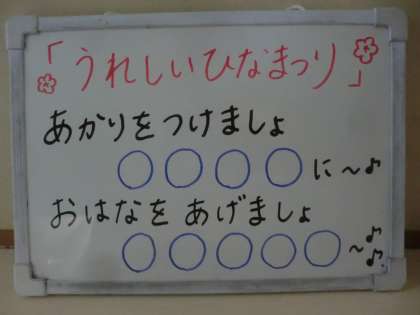 「うれしいひなまつり」
あかりをつけましょ
○○○○に～♪
おはなをあげましょ
○○○○○～♪♪